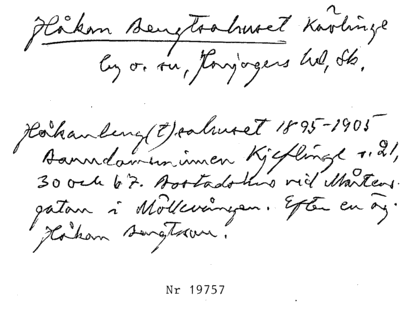 Håkan Bengtsahuset Kävlinge
by o. sn, Harjagers hd, Sk.
Håkanbeng(t)sahuset 1895-1905
Barndomsminnen Kjeflinge s. 21,
30 och 67. Bostadshus vid Mårtens-
gatan i Möllevången. Efter en äg.
Håkan Bengtsson.
Nr 19757